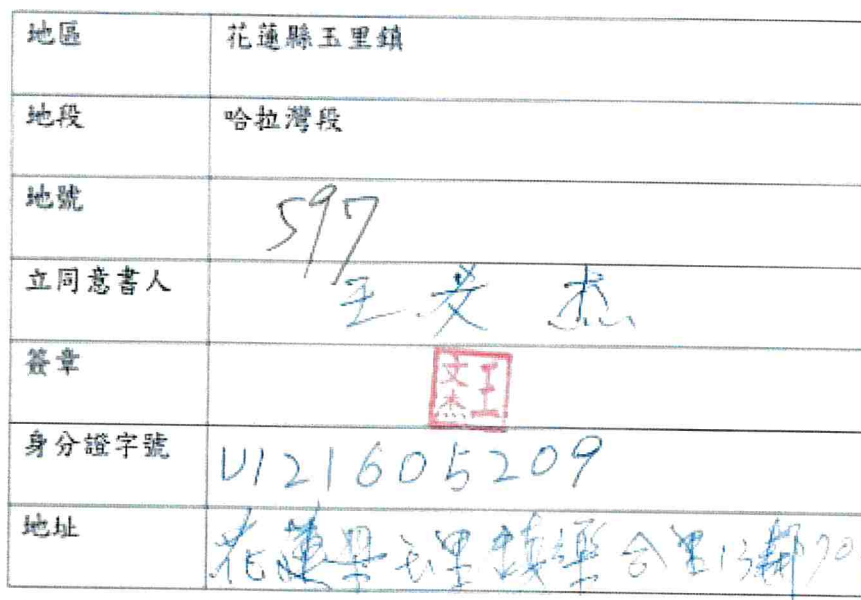 地區 花蓮縣玉里鎮
地段 哈拉灣段
地號 597
立同意書人 王文杰
簽章 王文杰
身分證字號 U121605209
地址 花蓮县玉里鎮樂合里13鄰70